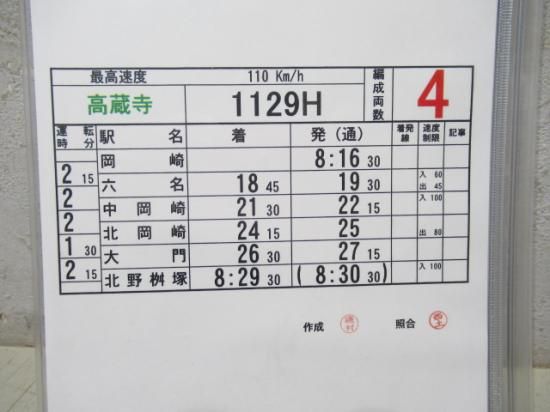 最高速度 110 Km/h 編成両数 4
高蔵寺 1129H
運転時分 駅名 着 発（通） 着発線 速度制限 記事
岡崎 8:16 30
2 15
六名 18 45 19 30 入 60 出 45
2
中岡崎 21 30 22 15 入 100
2
北岡崎 24 15 25 出 80
1 30
大門 26 30 27 15
2 15
北野桝塚 8:29 30 (8:30 30) 入 100
作成 磯村 照合